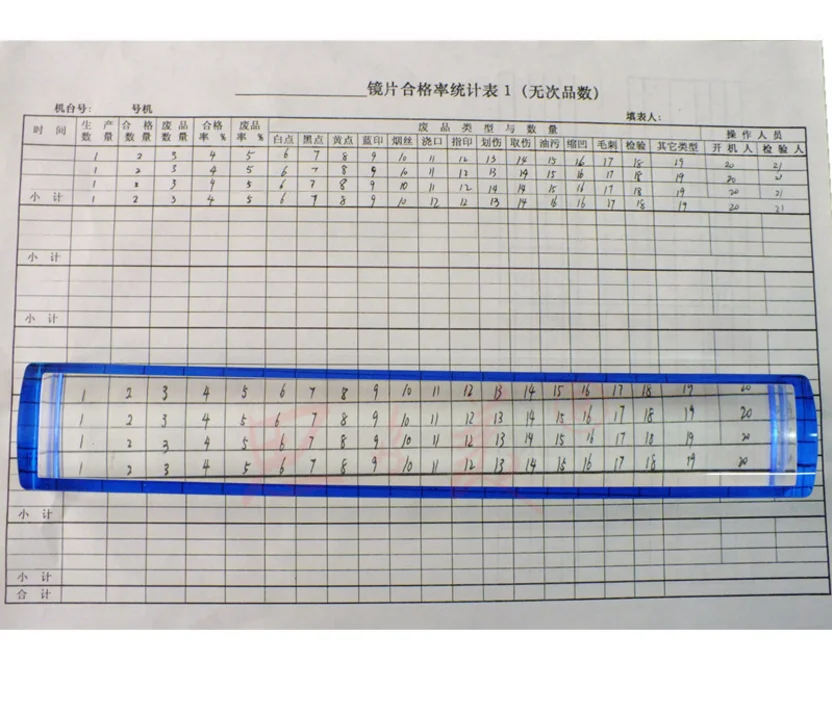 镜片合格率统计表 1 (无次品数)
机台号: 号机 填表人:
时 间 生产数量 合格数量 废品数量 合格率 % 废品率 % 废 品 类 型 与 数 量 操 作 人 员
白点 黑点 黄点 蓝印 烟丝 浇口 指印 划伤 取伤 油污 缩凹 毛刺 检验 其它类型 开 机 人 检 验 人
1 2 3 4 5 6 7 8 9 10 11 12 13 14 15 16 17 18 19 20 21
1 2 3 4 5 6 7 8 9 10 11 12 13 14 15 16 17 18 19 20 21
1 2 3 9 5 6 7 8 9 10 11 12 14 14 15 16 17 18 19 20 21
小 计 1 2 3 4 5 6 7 8 9 10 12 12 13 14 16 16 17 18 19 20 21
小 计
小 计
1 2 3 4 5 6 7 8 9 10 11 12 13 14 15 16 17 18 19 20
1 2 3 4 5 6 7 8 9 10 11 12 13 14 15 16 17 18 19 20
1 2 3 4 5 6 7 8 9 10 11 12 13 14 15 16 17 18 19 20
1 2 3 4 5 6 7 8 9 10 11 12 13 14 15 16 17 18 19 20
小 计
小 计
合 计